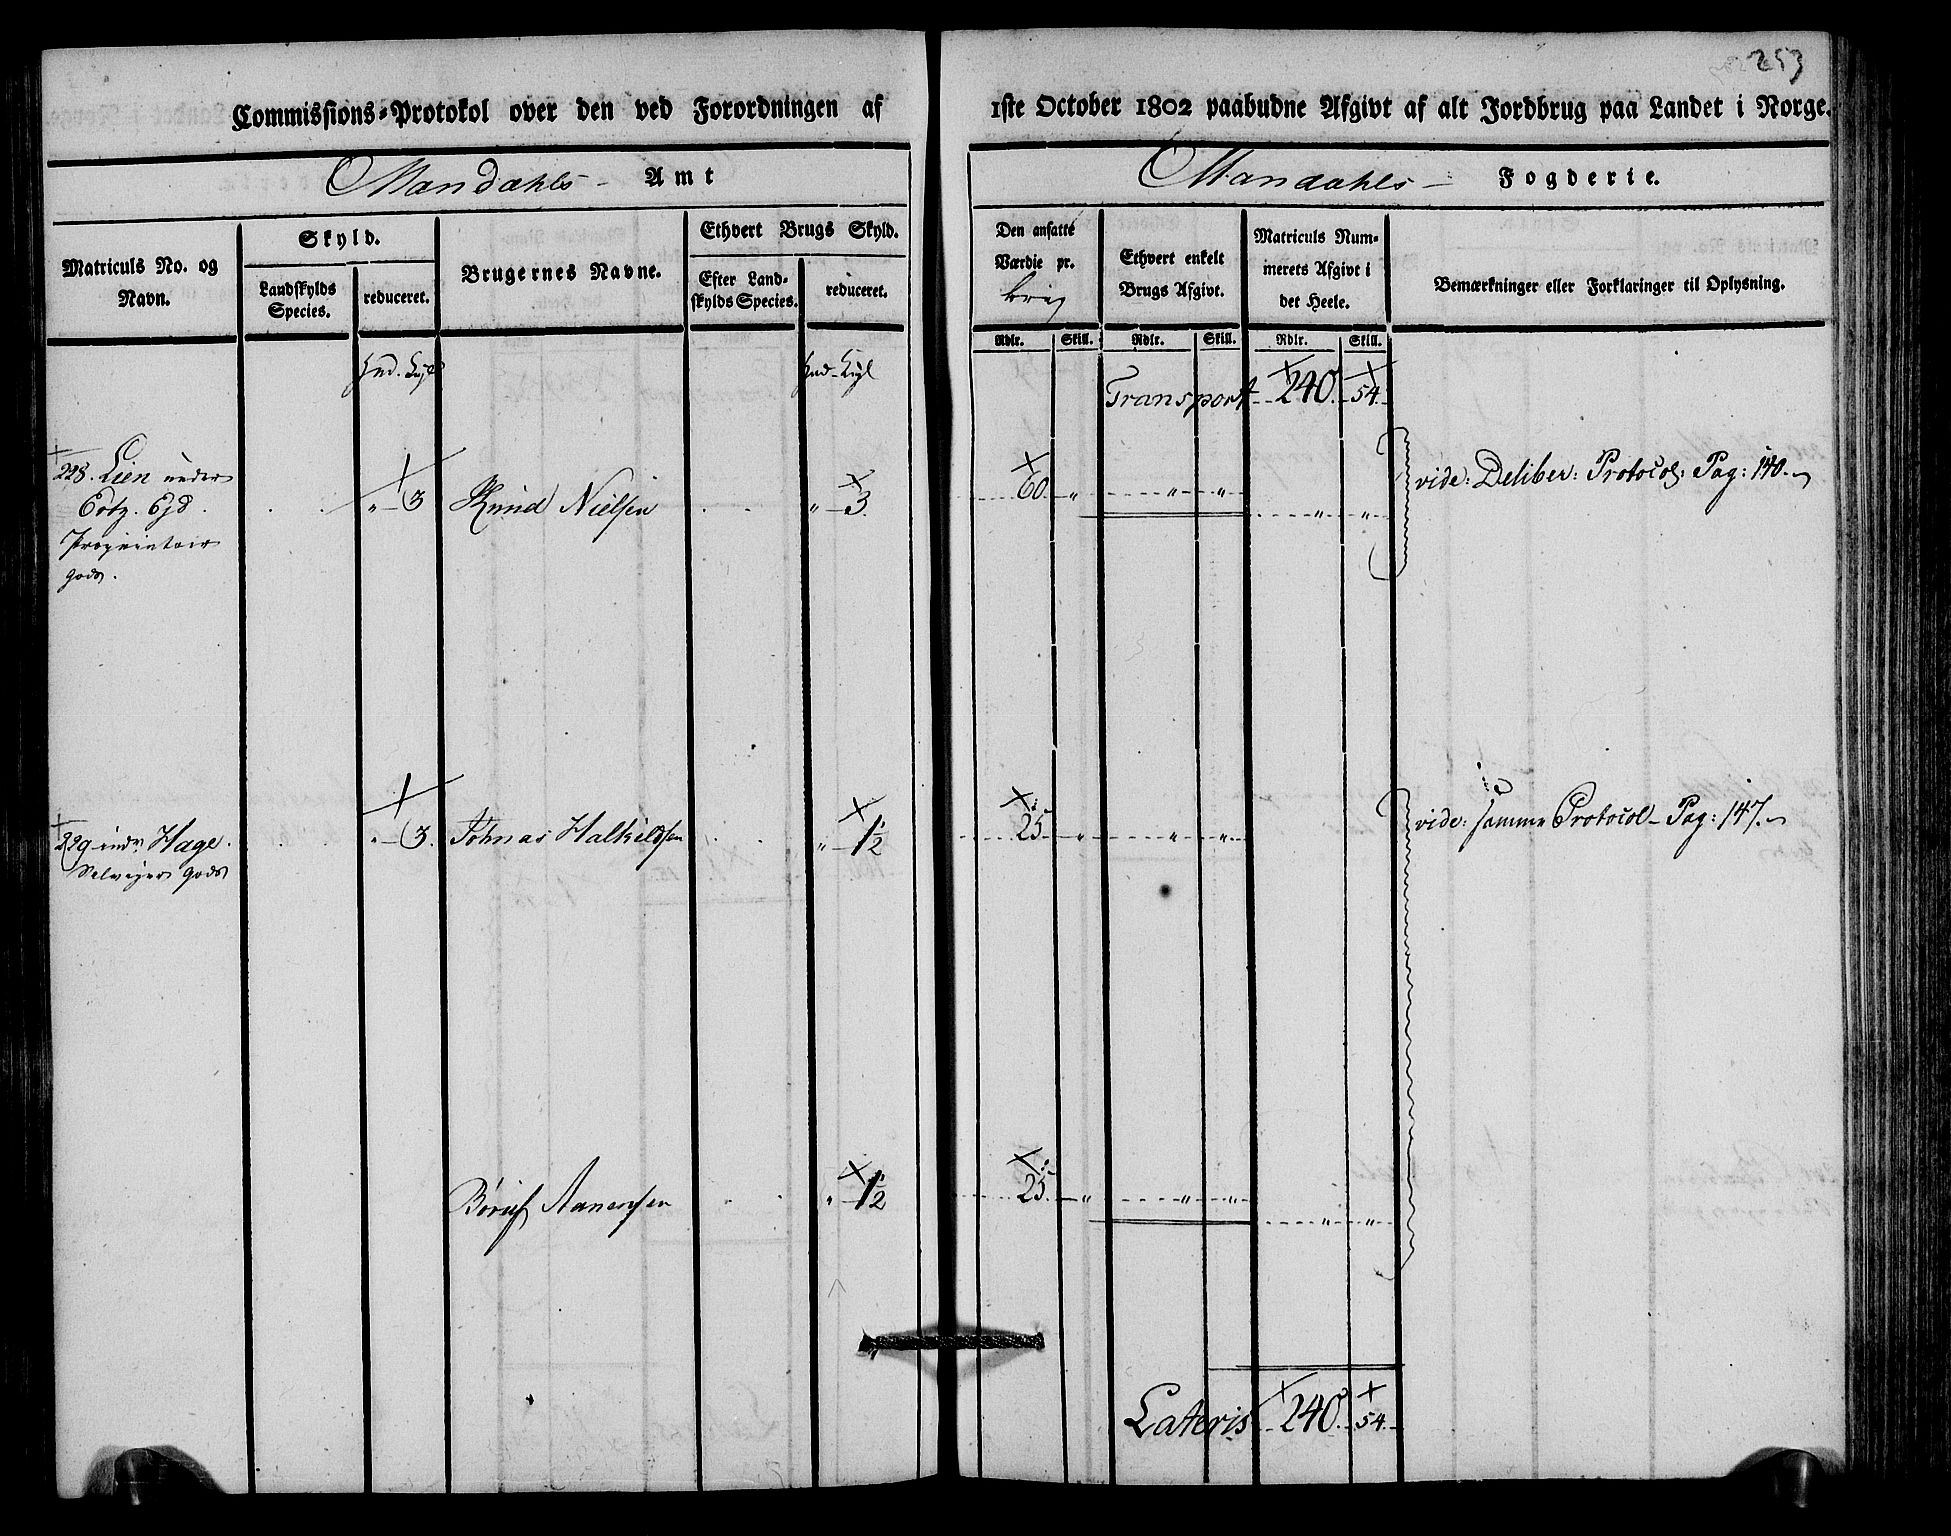 253
Commissions=Protokol over den ved Forordningen af 1ste October 1802 paabudne Afgivt af alt Jordbrug paa Landet i Norge.
Mandahls Amt
Mandahls Fogderie.
Matriculs No. og Navn.
Skyld.
Landskylds Species.
reduceret.
Brugernes Navne.
Ethvert Brugs Skyld.
Efter Landskylds Species.
reduceret.
Den ansatte Værdie pr.
Ethvert enkelt Brugs Afgivt.
Matriculs Nummerets Afgivt i det Heele.
Bemærkninger eller Forklaringer til Oplysning.
Rdlr. Skill. Rdlr. Skill. Rdlr. Skill.
Transport 240. 54.
228. Lien under " 3 Knud Nielsen " 3. 60. " " " " " vide: Deliber: Protocol: Pag: 140.
Proprietair
gods.
229 indr Hage. " 3. Johnas Halkildsen " 1½ 25 " " " vide: samme Protocol Pag: 147.
Selveyer Gods
Børuf Aanensen " 1½ 25. " " " " "
Lateris 240. 54.